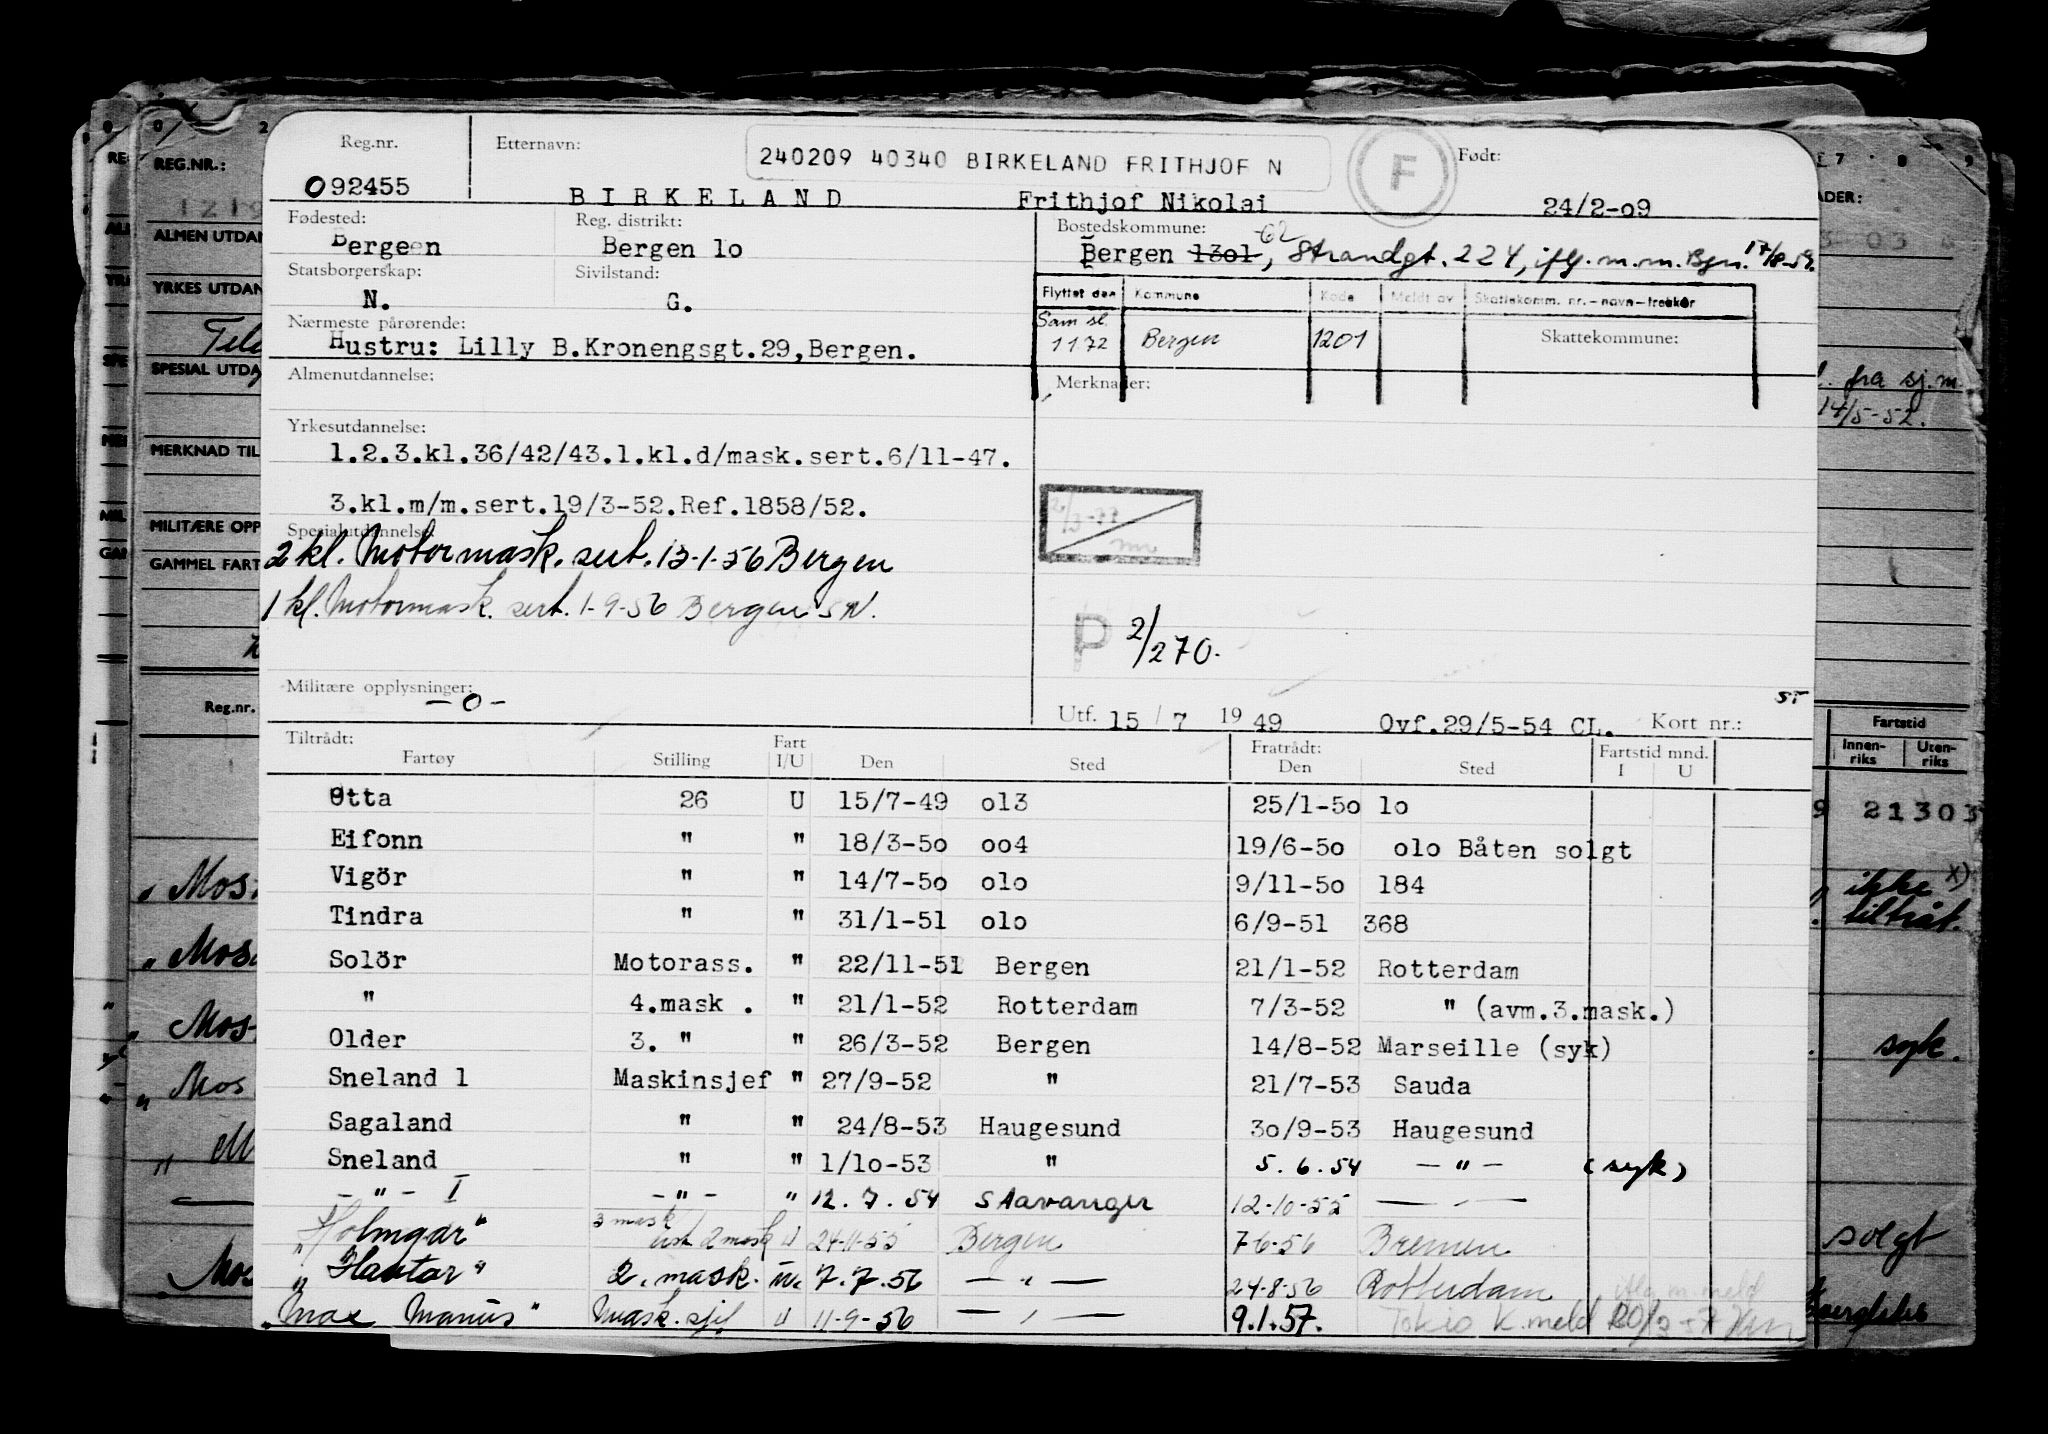 Reg.nr. Etternavn: 240209 40340 BIRKELAND FRITHJOF N F Født:
092455 BIRKELAND Frithjof Nikolai 24/2-o9
Fødested: Reg. distrikt: Bostedskommune:
Bergeen Bergen lo Bergen 13o1, Strandgt. 224, iflg. m.m. Bgn. 17/8-59.
Statsborgerskap: Sivilstand:
N. G.
Flyttet den Kommune Kode Meldt av Skattekomm. nr.-navn-trekkår
Nærmeste pårørende: Sam sl.
Hustru: Lilly B.Kronengsgt.29,Bergen. 1172 Bergen 1201 Skattekommune:
Almenutdannelse: Merknader:
Yrkesutdannelse:
1.2.3.kl.36/42/43.1.kl.d/mask.sert.6/11-47.
3.kl.m/m.sert.19/3-52.Ref.1858/52.
Spesialutdannelse:
2 kl. Motormask. sert. 13-1-56 Bergen
1 kl. Motormask. sert. 1-9-56 Bergen SN.
P 2/270.
Militære opplysninger:
-0-
Utf. 15/7 1949 Ovf.29/5-54 CL. Kort nr.:
Tiltrådt: Fart Fratrådt: Fartstid mnd.
Fartøy Stilling I/U Den Sted Den Sted I U
Otta 26 U 15/7-49 ol3 25/1-5o lo
Eifonn " " 18/3-5o oo4 19/6-5o olo Båten solgt
Vigör " " 14/7-5o olo 9/11-5o 184
Tindra " " 31/1-51 olo 6/9-51 368
Solör Motorass. " 22/11-51 Bergen 21/1-52 Rotterdam
" 4.mask . " 21/1-52 Rotterdam 7/3-52 " (avm.3.mask.)
Older 3. " " 26/3-52 Bergen 14/8-52 Marseille (syk)
Sneland 1 Maskinsjef " 27/9-52 " 21/7-53 Sauda
Sagaland " " 24/8-53 Haugesund 3o/9-53 Haugesund
Sneland " " 1/1o-53 " 5.6.54 - " - (syk)
- " - I - " - " 12.7.54 Stavanger 12-10-55
"Holmgar" 3 mask 2 mask U 24-11-55 Bergen 7-6-56 Bremen
"Havtor" 2. mask. 7.7.56 - " - 24-8-56 Rotterdam
"Max Manus" Mask.sjef U 11-9-56 - " - 9.1.57. Tokio K.meld
REG.NR.:
ALMEN UTDAN
YRKES UTDAN
SPESIAL UTDA
MERKNAD TIL
MILITÆRE OPP
GAMMEL FART
Reg.nr.
fra sj.m.
14/5-52.
Fartstid
Innen-riks Uten-riks
21303
ikke x)
tiltråt.
syk.
solgt